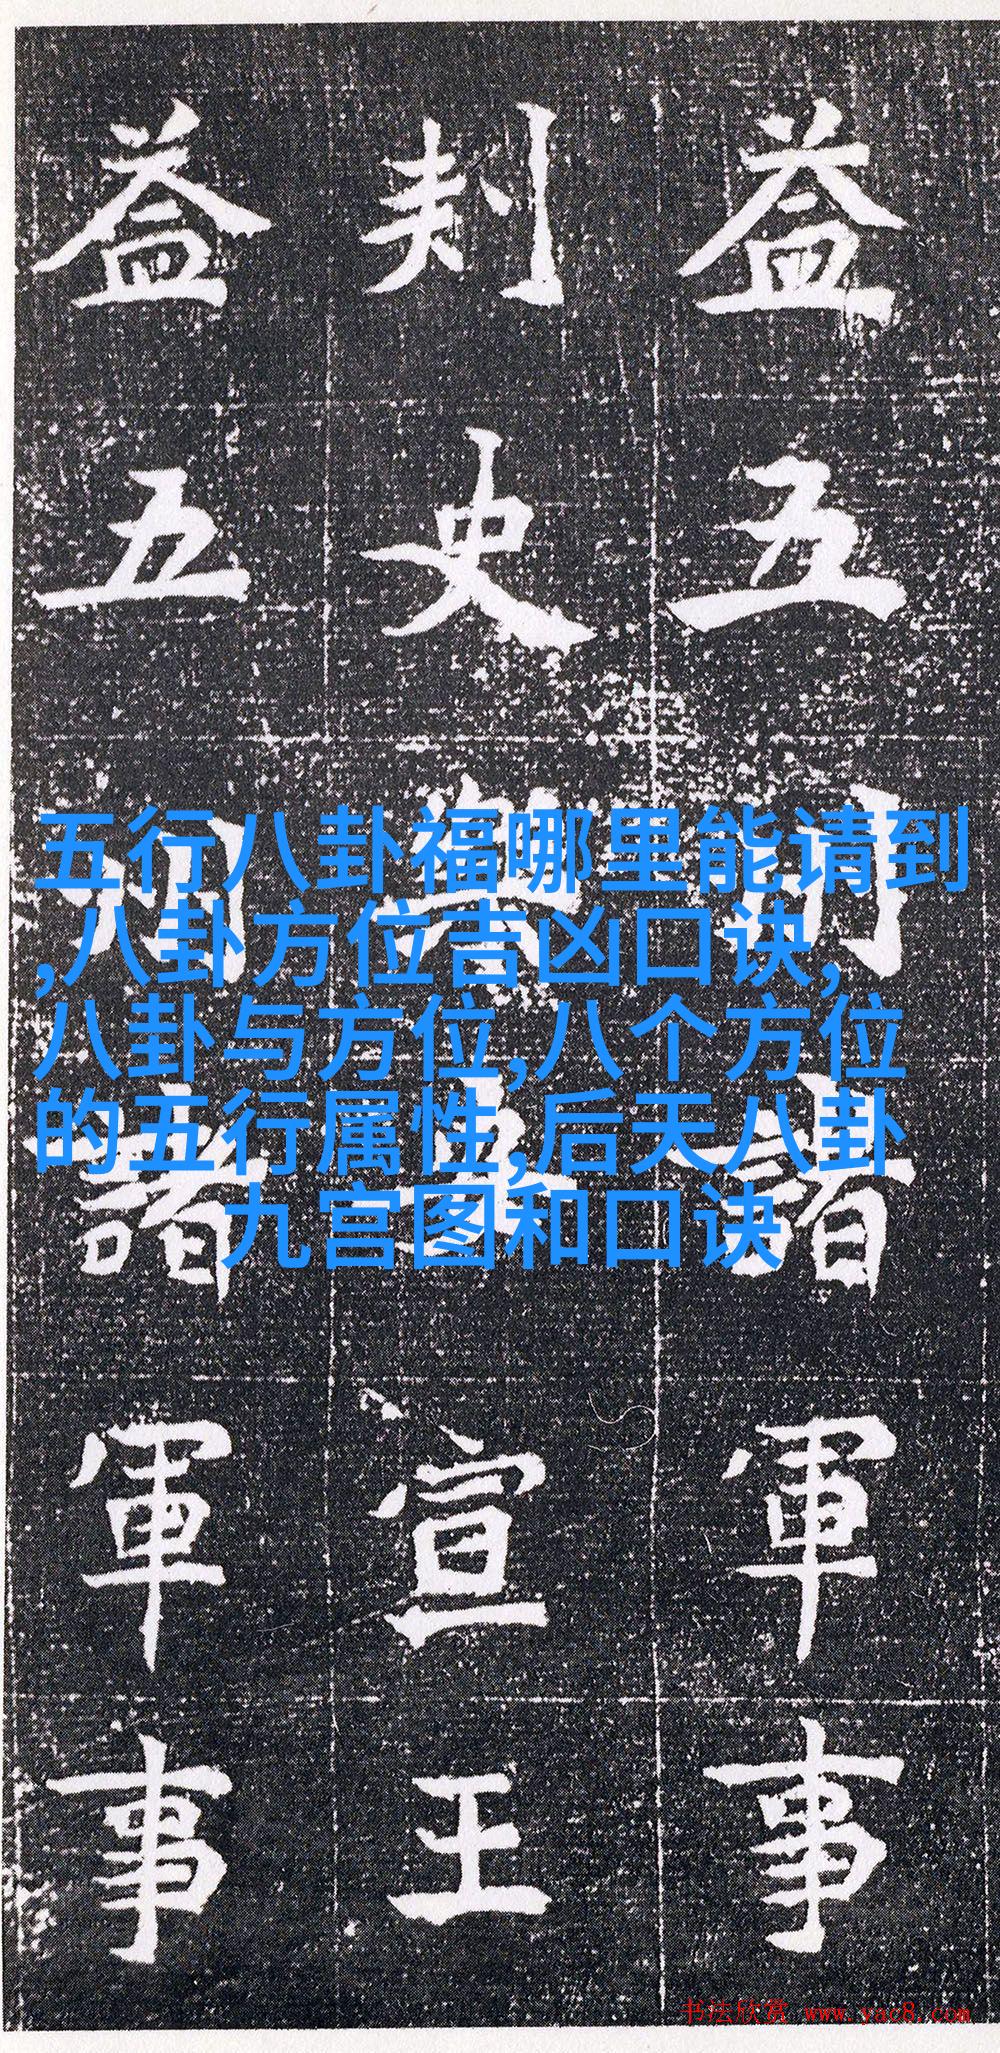 益五州諸軍事
刺史宣王
益五州諸軍事
五行八卦福哪里能请到
,八卦方位吉凶口诀,
八卦与方位,八个方位
的五行属性,后天八卦
九宫图和口诀
书法欣赏 www.yac8.com